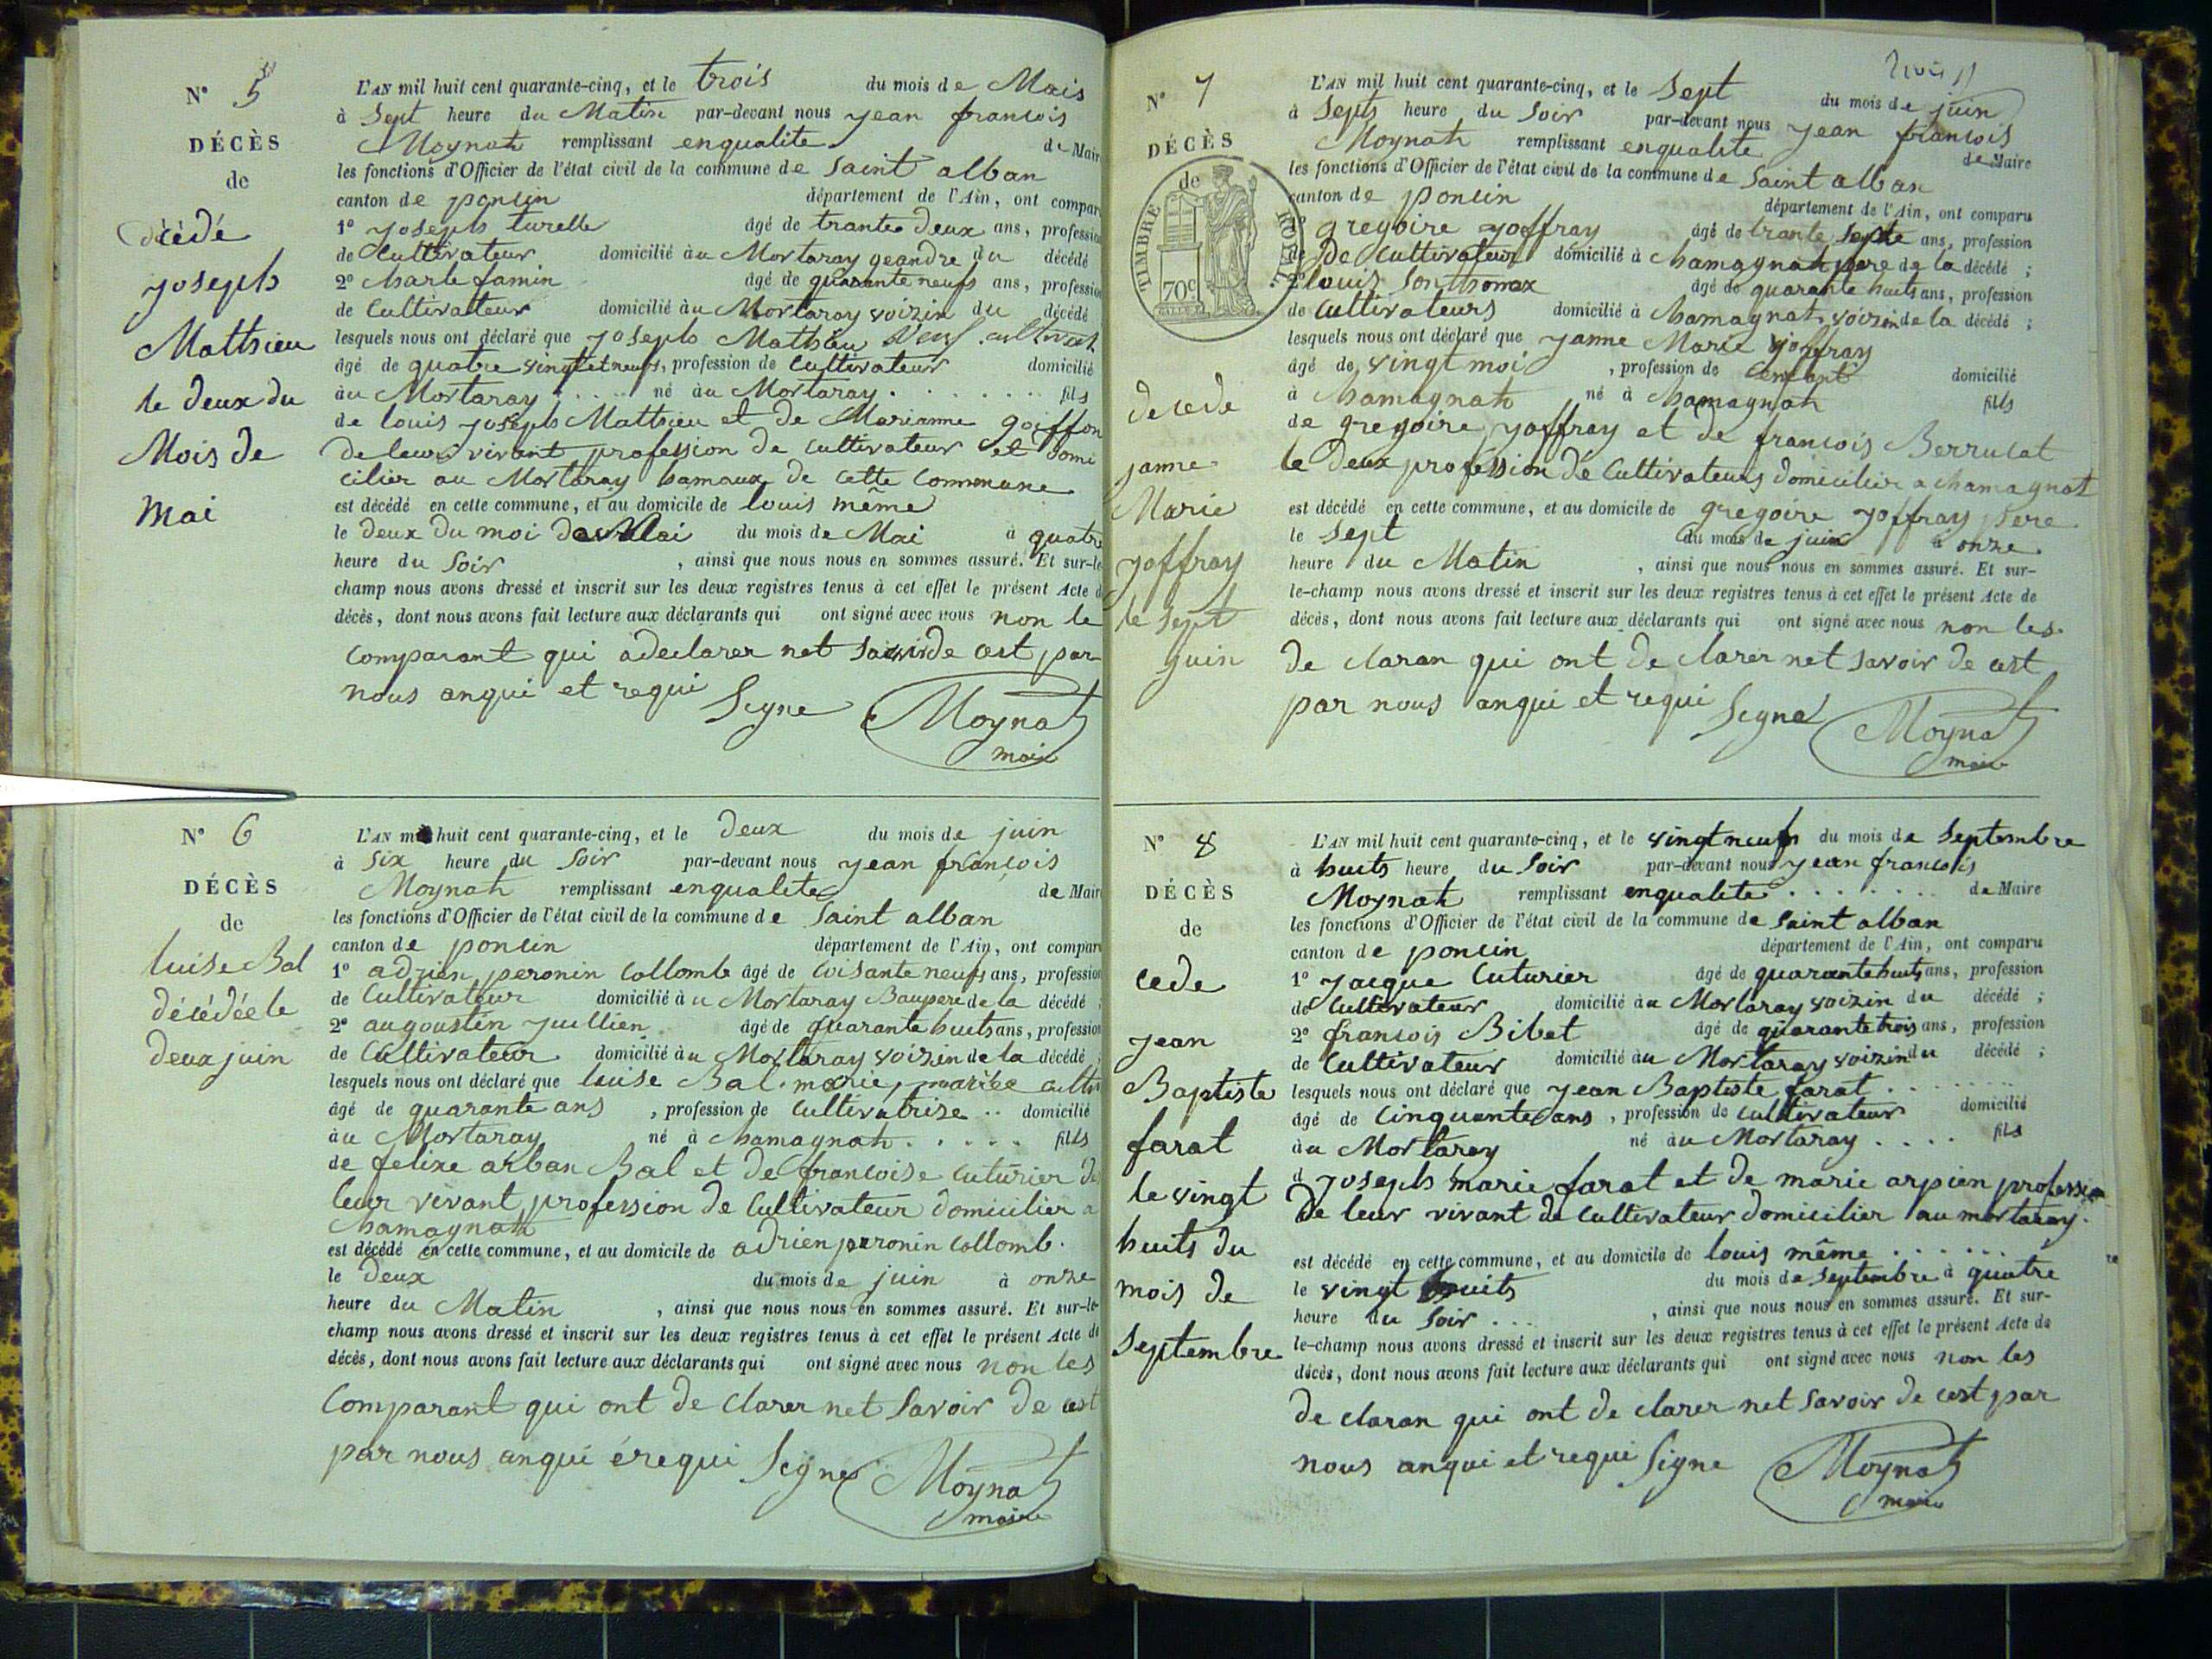 N° 5
DÉCÈS
de
décédé
joseph
Matthieu
le deux du
Mois de
Mai
L'AN mil huit cent quarante-cinq, et le trois du mois de Mais
à Sept heure du Matin par-devant nous jean francois
Moynat remplissant enqualite de Mair
les fonctions d'Officier de l'état civil de la commune de Saint alban
canton de poncin département de l'Ain, ont compar
1° joseph turelle âgé de trante deux ans, profession
de Cultivateur domicilié àu Mortaray geandre du décédé
2° charle famin âgé de quarante neufs ans, profession
de Cultivateur domicilié àu Mortaray voizin du décédé
lesquels nous ont déclaré que joseph Mathieu Veuf cultivat
âgé de quatre vingt et neufs, profession de Cultivateur domicilié
àu Mortaray né àu Mortaray fils
de louis joseph Matthieu et de Marianne goiffon
de leur vivant profession de cultivateur et domi
cilier au Mortaray hamaux de cette Commune
est décédé en cette commune, et au domicile de louis même
le deux du moi de Mai du mois de Mai à quatre
heure du Soir, ainsi que nous nous en sommes assuré. Et sur-le
champ nous avons dressé et inscrit sur les deux registres tenus à cet effet le présent Acte d
décès, dont nous avons fait lecture aux déclarants qui ont signé avec nous non le
comparant qui adeclarer net savoir de cest par
nous anqui et requi Signe Moynat
maire
N° 6
DÉCÈS
de
luise Bal
décédée le
deux juin
L'AN mil huit cent quarante-cinq, et le deux du mois de juin
à Six heure du Soir par-devant nous jean francois
Moynat remplissant enqualite de Mair
les fonctions d'Officier de l'état civil de la commune de Saint alban
canton de poncin département de l'Ain, ont compar
1° adrien peronin Collomb âgé de soisante neufs ans, profession
de Cultivateur domicilié àu Mortaray Baupere de la décédé
2° augoustin juillien âgé de quarante huits ans, profession
de Cultivateur domicilié àu Mortaray voizin de la décédé
lesquels nous ont déclaré que luise Bal. marie, mariée cultiv
âgé de quarante ans, profession de Cultivatrise domicilié
àu Mortaray né à chamagnat fills
de felixe arban Bal et de francoise cuturier de
leur vivant profession de Cultivateur domicilier a
chamagnat
est décédé en cette commune, et au domicile de adrien peronin collomb.
le deux du mois de juin à onze
heure du Matin, ainsi que nous nous en sommes assuré. Et sur-le-
champ nous avons dressé et inscrit sur les deux registres tenus à cet effet le présent Acte de
décès, dont nous avons fait lecture aux déclarants qui ont signé avec nous non les
Comparant qui ont de clarer net Savoir de cest
par nous anqui érequi Signe Moynat
maire
N° 7
DÉCÈS
de
TIMBRE ROYAL.
70c
decede
janne
Marie
joffray
le sept
juin
L'AN mil huit cent quarante-cinq, et le Sept du mois de juin
à Septs heure du Soir par-devant nous jean francois
Moynat remplissant enqualite de Maire
les fonctions d'Officier de l'état civil de la commune de Saint alban
canton de poncin département de l'Ain, ont comparu
1° gregoire joffray âgé de trante Septe ans, profession
de de cultivateur domicilié à chamagnat pere de la décédé ;
2° louis Sonthonax âgé de quarante huits ans, profession
de Cultivateurs domicilié à chamagnat voizin de la décédé ;
lesquels nous ont déclaré que janne Marie joffray
âgé de vingt moi, profession de enfant domicilié
à chamagnat né à chamagnat fills
de gregoire joffray et de francois Berrucat
le deux profession de Cultivateurs domicilier a chamagnat
est décédé en cette commune, et au domicile de gregoire joffray pere
le Sept du mois de juin à onze.
heure du Matin, ainsi que nous nous en sommes assuré. Et sur-
le-champ nous avons dressé et inscrit sur les deux registres tenus à cet effet le présent Acte de
décès, dont nous avons fait lecture aux déclarants qui ont signé avec nous non les
de claran qui ont de clarer net savoir de cest
par nous anqui et requi Signe Moynat
maire
N° 8
DÉCÈS
de
cede
jean
Baptiste
farat
le vingt
huits du
mois de
Septembre
L'AN mil huit cent quarante-cinq, et le vingt neufs du mois de Septembre
à huits heure du Soir par-devant nous jean francois
Moynat remplissant enqualite de Maire
les fonctions d'Officier de l'état civil de la commune de Saint alban
canton de poncin département de l'Ain, ont comparu
1° jacque Cuturier âgé de quarante huits ans, profession
de Cultivateur domicilié àu Mortaray voizin du décédé ;
2° francois Bibet âgé de quarante trois ans, profession
de Cultivateur domicilié àu Mortaray voizin du décédé ;
lesquels nous ont déclaré que jean Baptiste farat
âgé de Cinquante ans, profession de Cultivateur domicilié
àu Mortaray né àu Mortaray fils
d joseph marie farat et de marie arpien profession
de leur vivant de cultivateur domicilier au mortaray.
est décédé en cette commune, et au domicile de louis même
le vingt huits du mois de Septembre à quatre
heure du Soir, ainsi que nous nous en sommes assuré. Et sur-
le-champ nous avons dressé et inscrit sur les deux registres tenus à cet effet le présent Acte de
décès, dont nous avons fait lecture aux déclarants qui ont signé avec nous non les
de claran qui ont de clarer net savoir de cest par
nous anqui et requi Signe Moynat
maire